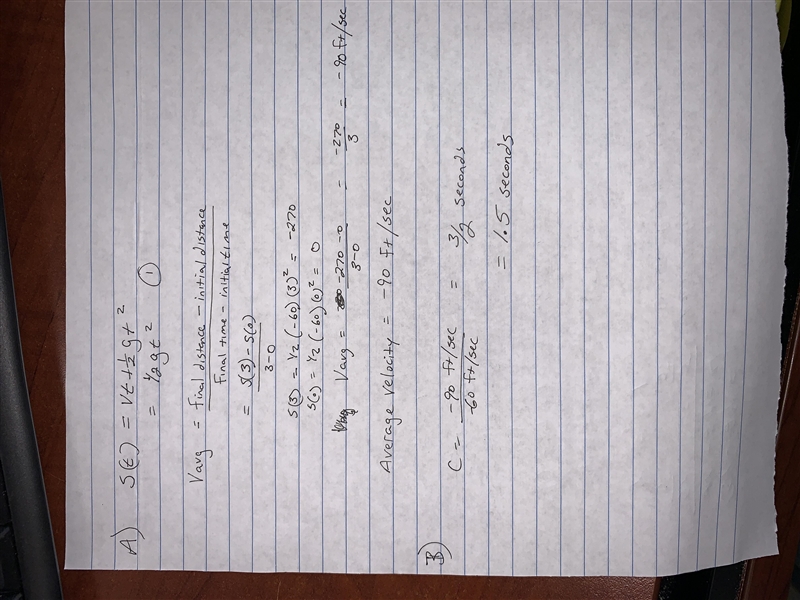 A) S(t) = Vt + 1/2 gt²
= 1/2 gt² ①
Vavg = Final distance - initial distance / Final time - initial time
= S(3) - S(0) / 3-0
S(3) = 1/2 (-60) (3)² = -270
S(0) = 1/2 (-60) (0)² = 0
Vavg = -270 - 0 / 3-0 = -270 / 3 = -90 ft/sec
Average Velocity = -90 ft/sec
B) C = -90 ft/sec / -60 ft/sec = 3/2 seconds
= 1.5 seconds